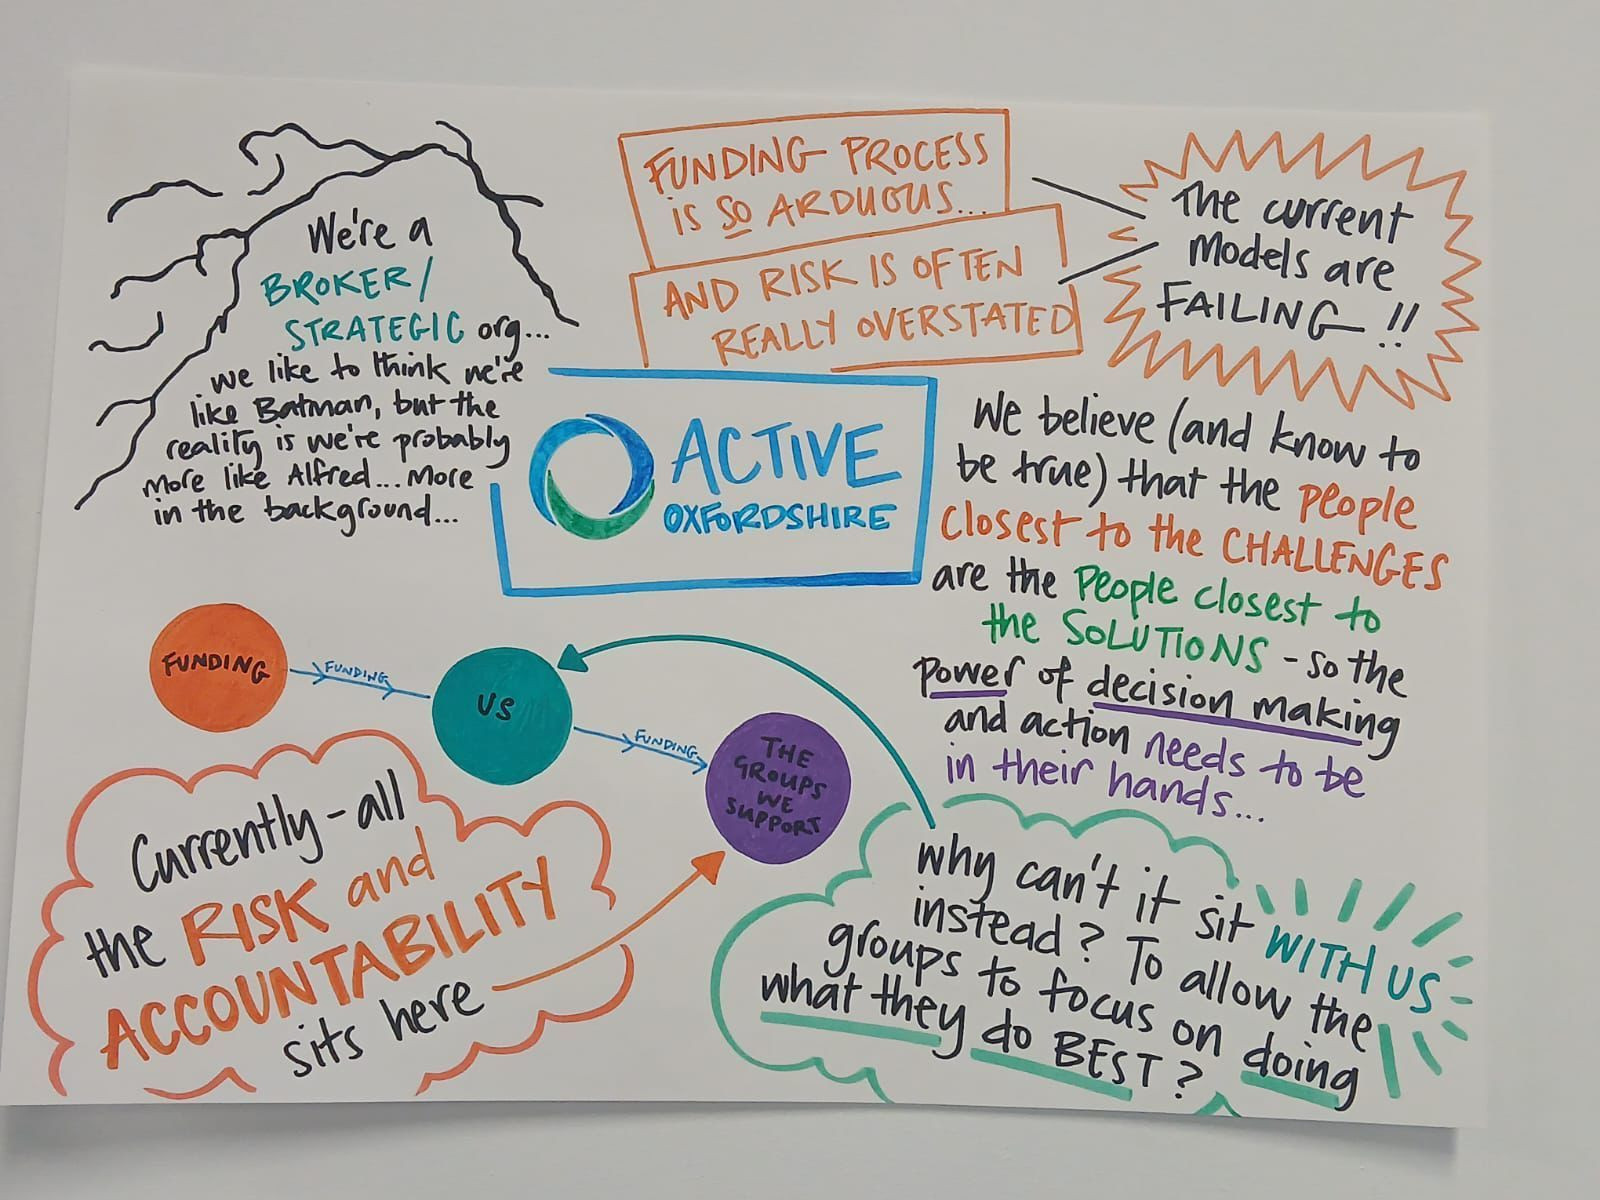 We're a
BROKER/
STRATEGIC org...
we like to think we're
like Batman, but the
reality is we're probably
more like Alfred... More
in the background...
FUNDING PROCESS
is SO ARDUOUS...
AND RISK IS OFTEN
REALLY OVERSTATED
The current
Models are
FAILING!!
ACTIVE
OXFORDSHIRE
We believe (and know to
be true) that the people
closest to the CHALLENGES
are the people closest to
the SOLUTIONS - so the
power of decision making
and action needs to be
in their hands...
FUNDING
FUNDING
US
FUNDING
THE
GROUPS
WE
SUPPORT
Currently - all
the RISK and
ACCOUNTABILITY
sits here
why can't it sit WITH US
instead? To allow the
groups to focus on doing
what they do BEST?